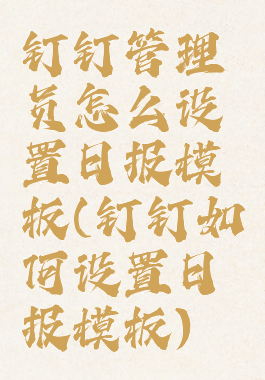 钉钉管理
员怎么设
置日报模
板(钉钉如
何设置日
报模板)